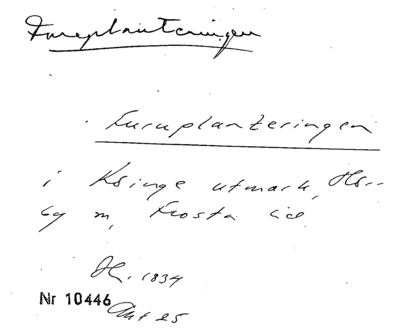 Furuplanteringen
Furuplanteringen
i Ksinge utmark, Hs--
by m, Frosta
H. 1834
Nr 10446